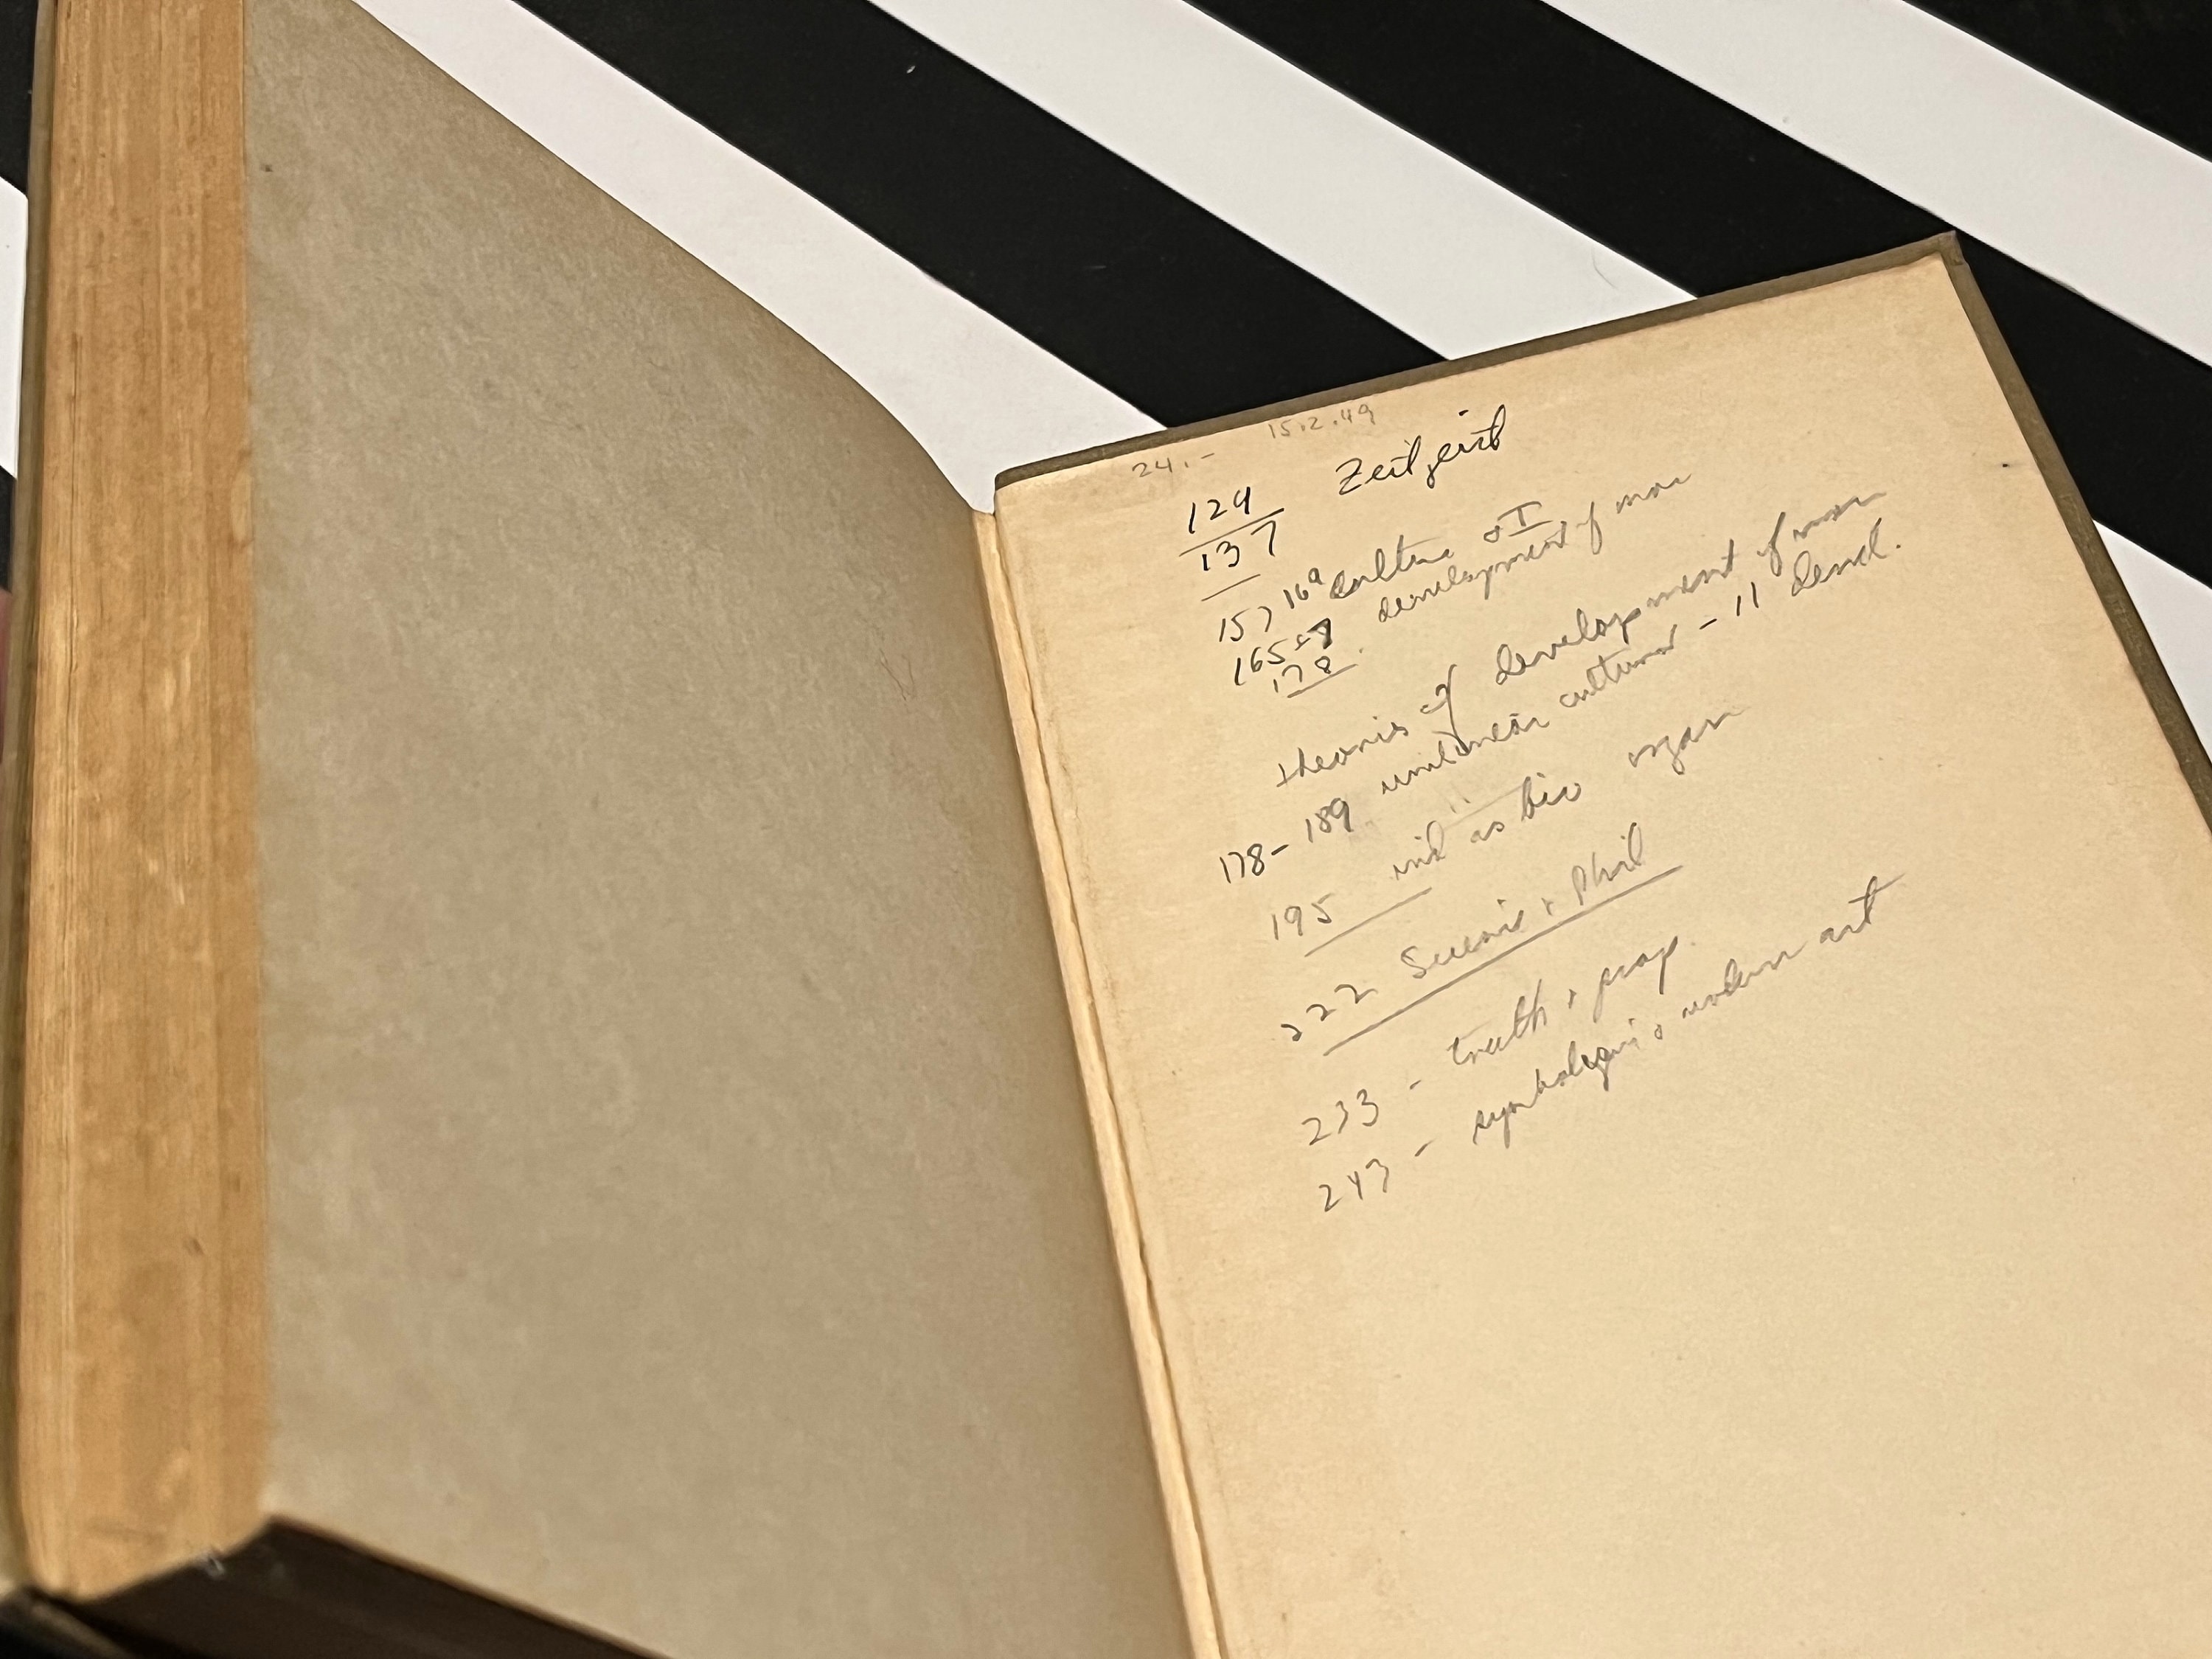 15.2.49
24.-
129 Zeitgeist
137
157 169 culture & I
165-7 development of man
178
theories of development of man
178-189 unilinear cultural - 11 devel.
195 ind as bio organ
222 Science & Phil
233 - truth & prag.
243 - symbolism & modern art